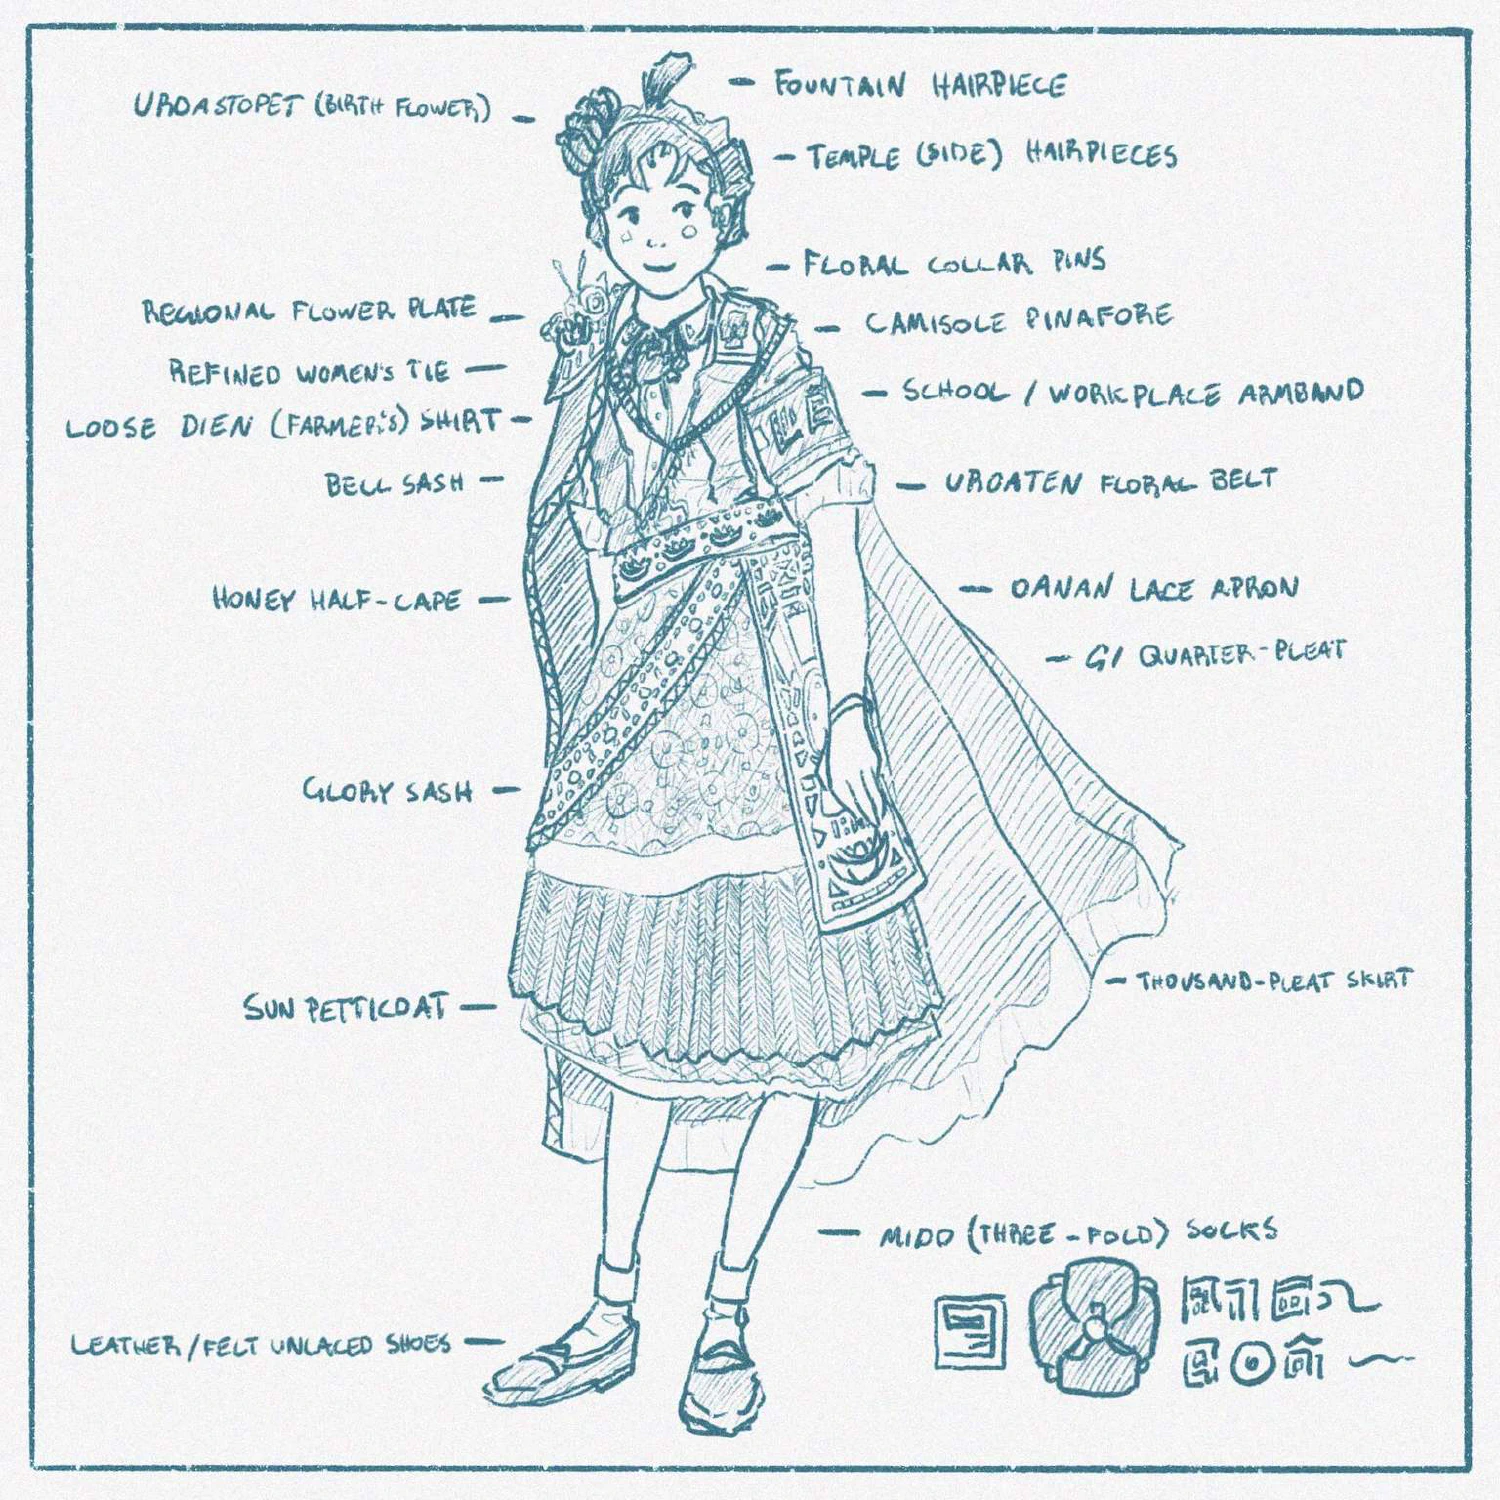 FOUNTAIN HAIRPIECE
URDASTOPET (BIRTH FLOWER)
TEMPLE (SIDE) HAIRPIECES
FLORAL COLLAR PINS
REGIONAL FLOWER PLATE
CAMISOLE PINAFORE
REFINED WOMEN'S TIE
SCHOOL / WORKPLACE ARMBAND
LOOSE DIEN (FARMER'S) SHIRT
BELL SASH
URDATEN FLORAL BELT
HONEY HALF-CAPE
DANAN LACE APRON
GI QUARTER-PLEAT
GLORY SASH
THOUSAND-PLEAT SKIRT
SUN PETTICOAT
MIDD (THREE-FOLD) SOCKS
LEATHER/FELT UNLACED SHOES